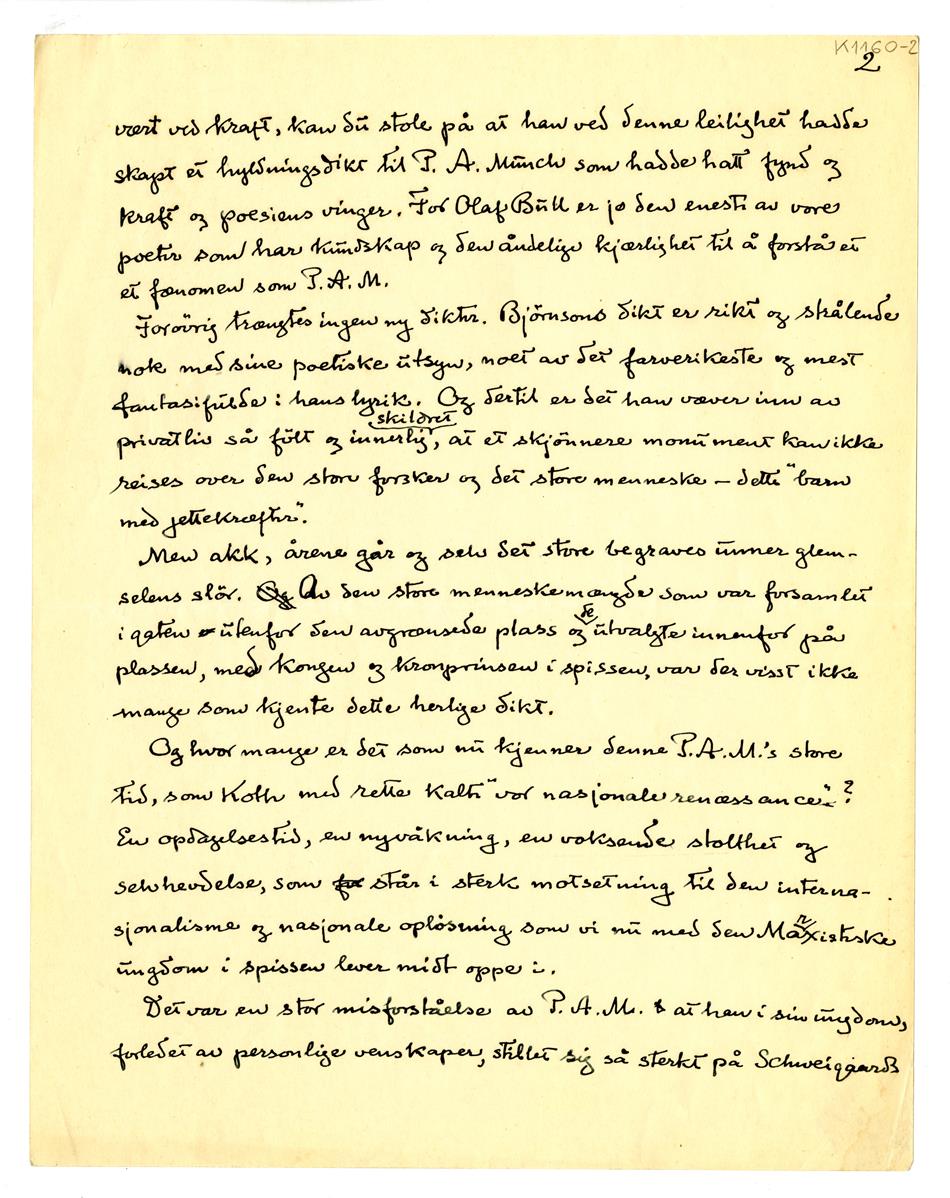 K1160-2
2
vært ved kraft, kan du stole på at han ved denne leilighet hadde
skapt et hyldningsdikt til P. A. Munch som hadde hatt fynd og
kraft og poesiens vinger. For Olaf Bull er jo den eneste av vore
poeter som har kundskap og den åndelige kjærlighet til å forstå et
et fænomen som P. A. M.
Forövrig trængtes ingen ny dikter. Björnsons dikt er rikt og strålende
nok med sine poetiske utsyn, noet av det farverikeste og mest
fantasifulde i hans lyrik. Og dertil er det han væver inn av
skildret
privatliv så fölt og innerlig, at et skjönnere monument kan ikke
reises over den store forsker og det store menneske – dette "barn
med jettekræfter".
Men akk, årene går og selv det store begraves unner glem-
selens slör. Og Av den store menneskemængde som var forsamlet
i gaten utenfor den avgrænsede plass og de utvalgte innenfor på
plassen, med kongen og kronprinsen i spissen, var der visst ikke
mange som kjente dette herlige dikt.
Og hvor mange er det som nu kjenner denne P. A. M.'s store
tid, som Koth med rette kalte "vor nasjonale renæssance"?
En opdagelsestid, en nyvåkning, en voksende stolthet og
selvhevdelse, som står i sterk motsetning til den interna-
sjonalisme og nasjonale oplösning som vi nu med den Marxistiske
ungdom i spissen lever midt oppe i.
Det var en stor misforståelse av P. A. M. at han i sin ungdom,
forledet av personlige venskaper, stillet sig så sterkt på Schweigaards